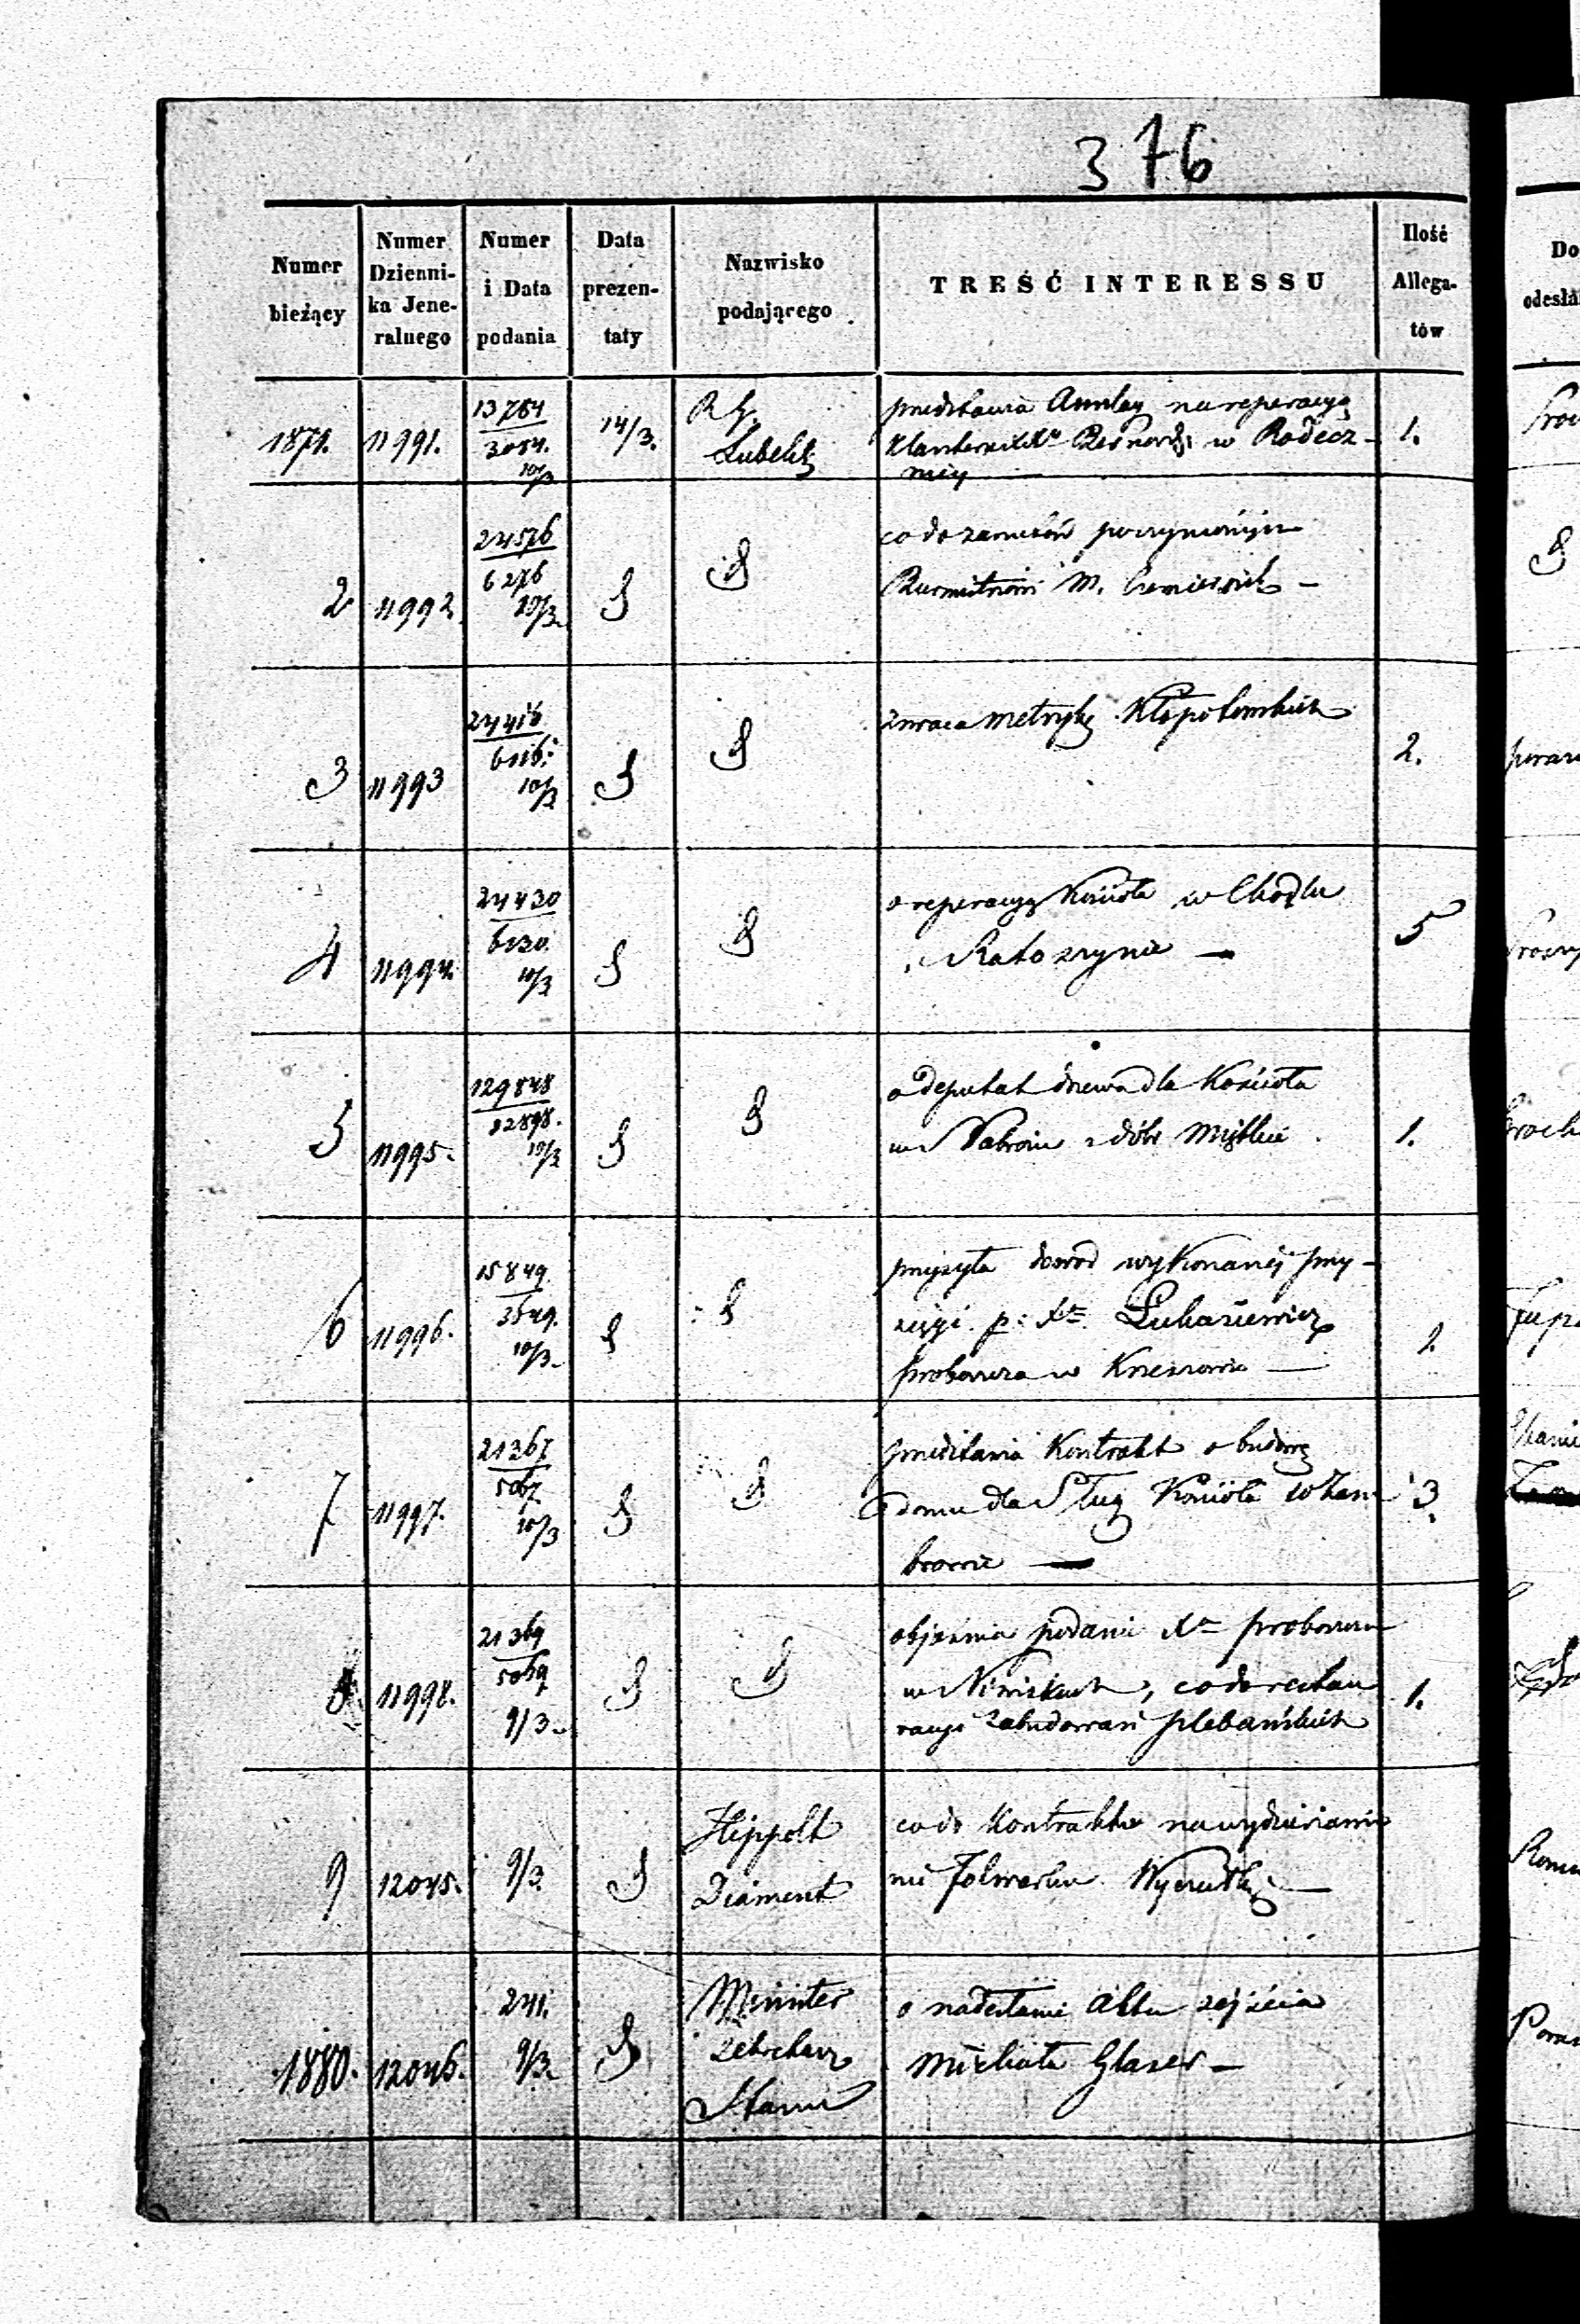 376
Numer bieżący
Numer Dzienni- ka Jene- ralnego
Numer i Data podania
Data prezen- taty
Nazwisko podającego
TREŚĆ INTERESSU
Ilość Allega- tów
Do
odesła
1871. 11991. 13784 / 3084. 10/3 14/3. R. G. Lubelsk 1.
przedstawia Anszlag na reperacyą
Klasztoru XXy Bernard. w Radecz-
nicy
2 11992. 24576 / 6276 10/3.
co do zarzutów poczynionych
Burmistrzowi M.
3 11993 24416 / 6116. 10/3 2.
zwraca metrykę Kłopotowskich
4 11994. 24430 / 6130. 10/3 5
o reperacyą Kościoła w Chodlu
i Ratoszynie —
5 11995. 129848 / 32898. 10/3 1.
o deputat drzewa dla Kościoła
w Nabrożu z dóbr
6 11996. 15849. / 3649. 10/3. 1.
przysyła dowód wykonanej przy-
sięgi p: Xa Łukasiewicz
proboszcza w Krzeszowie —
7 11997. 21367 / 5067 10/3 3.
przedstawia Kontrakt o budowę
domu dla Sług Kościoła w Dam
browie —
8. 11998. 21369 / 5069 9/3. 1.
objaśnia podanie Xa proboszcza
w, co do restau
racyi zabudowań plebańskich
9 12045. 9/3. Hippolt Diament
co do Kontraktu na wydzierżawie
nie Folwarku
1880. 12046. 241. 9/3. Minister Sekretarz Stanu
o nadesłanie aktu zejścia
Michała Glaser —